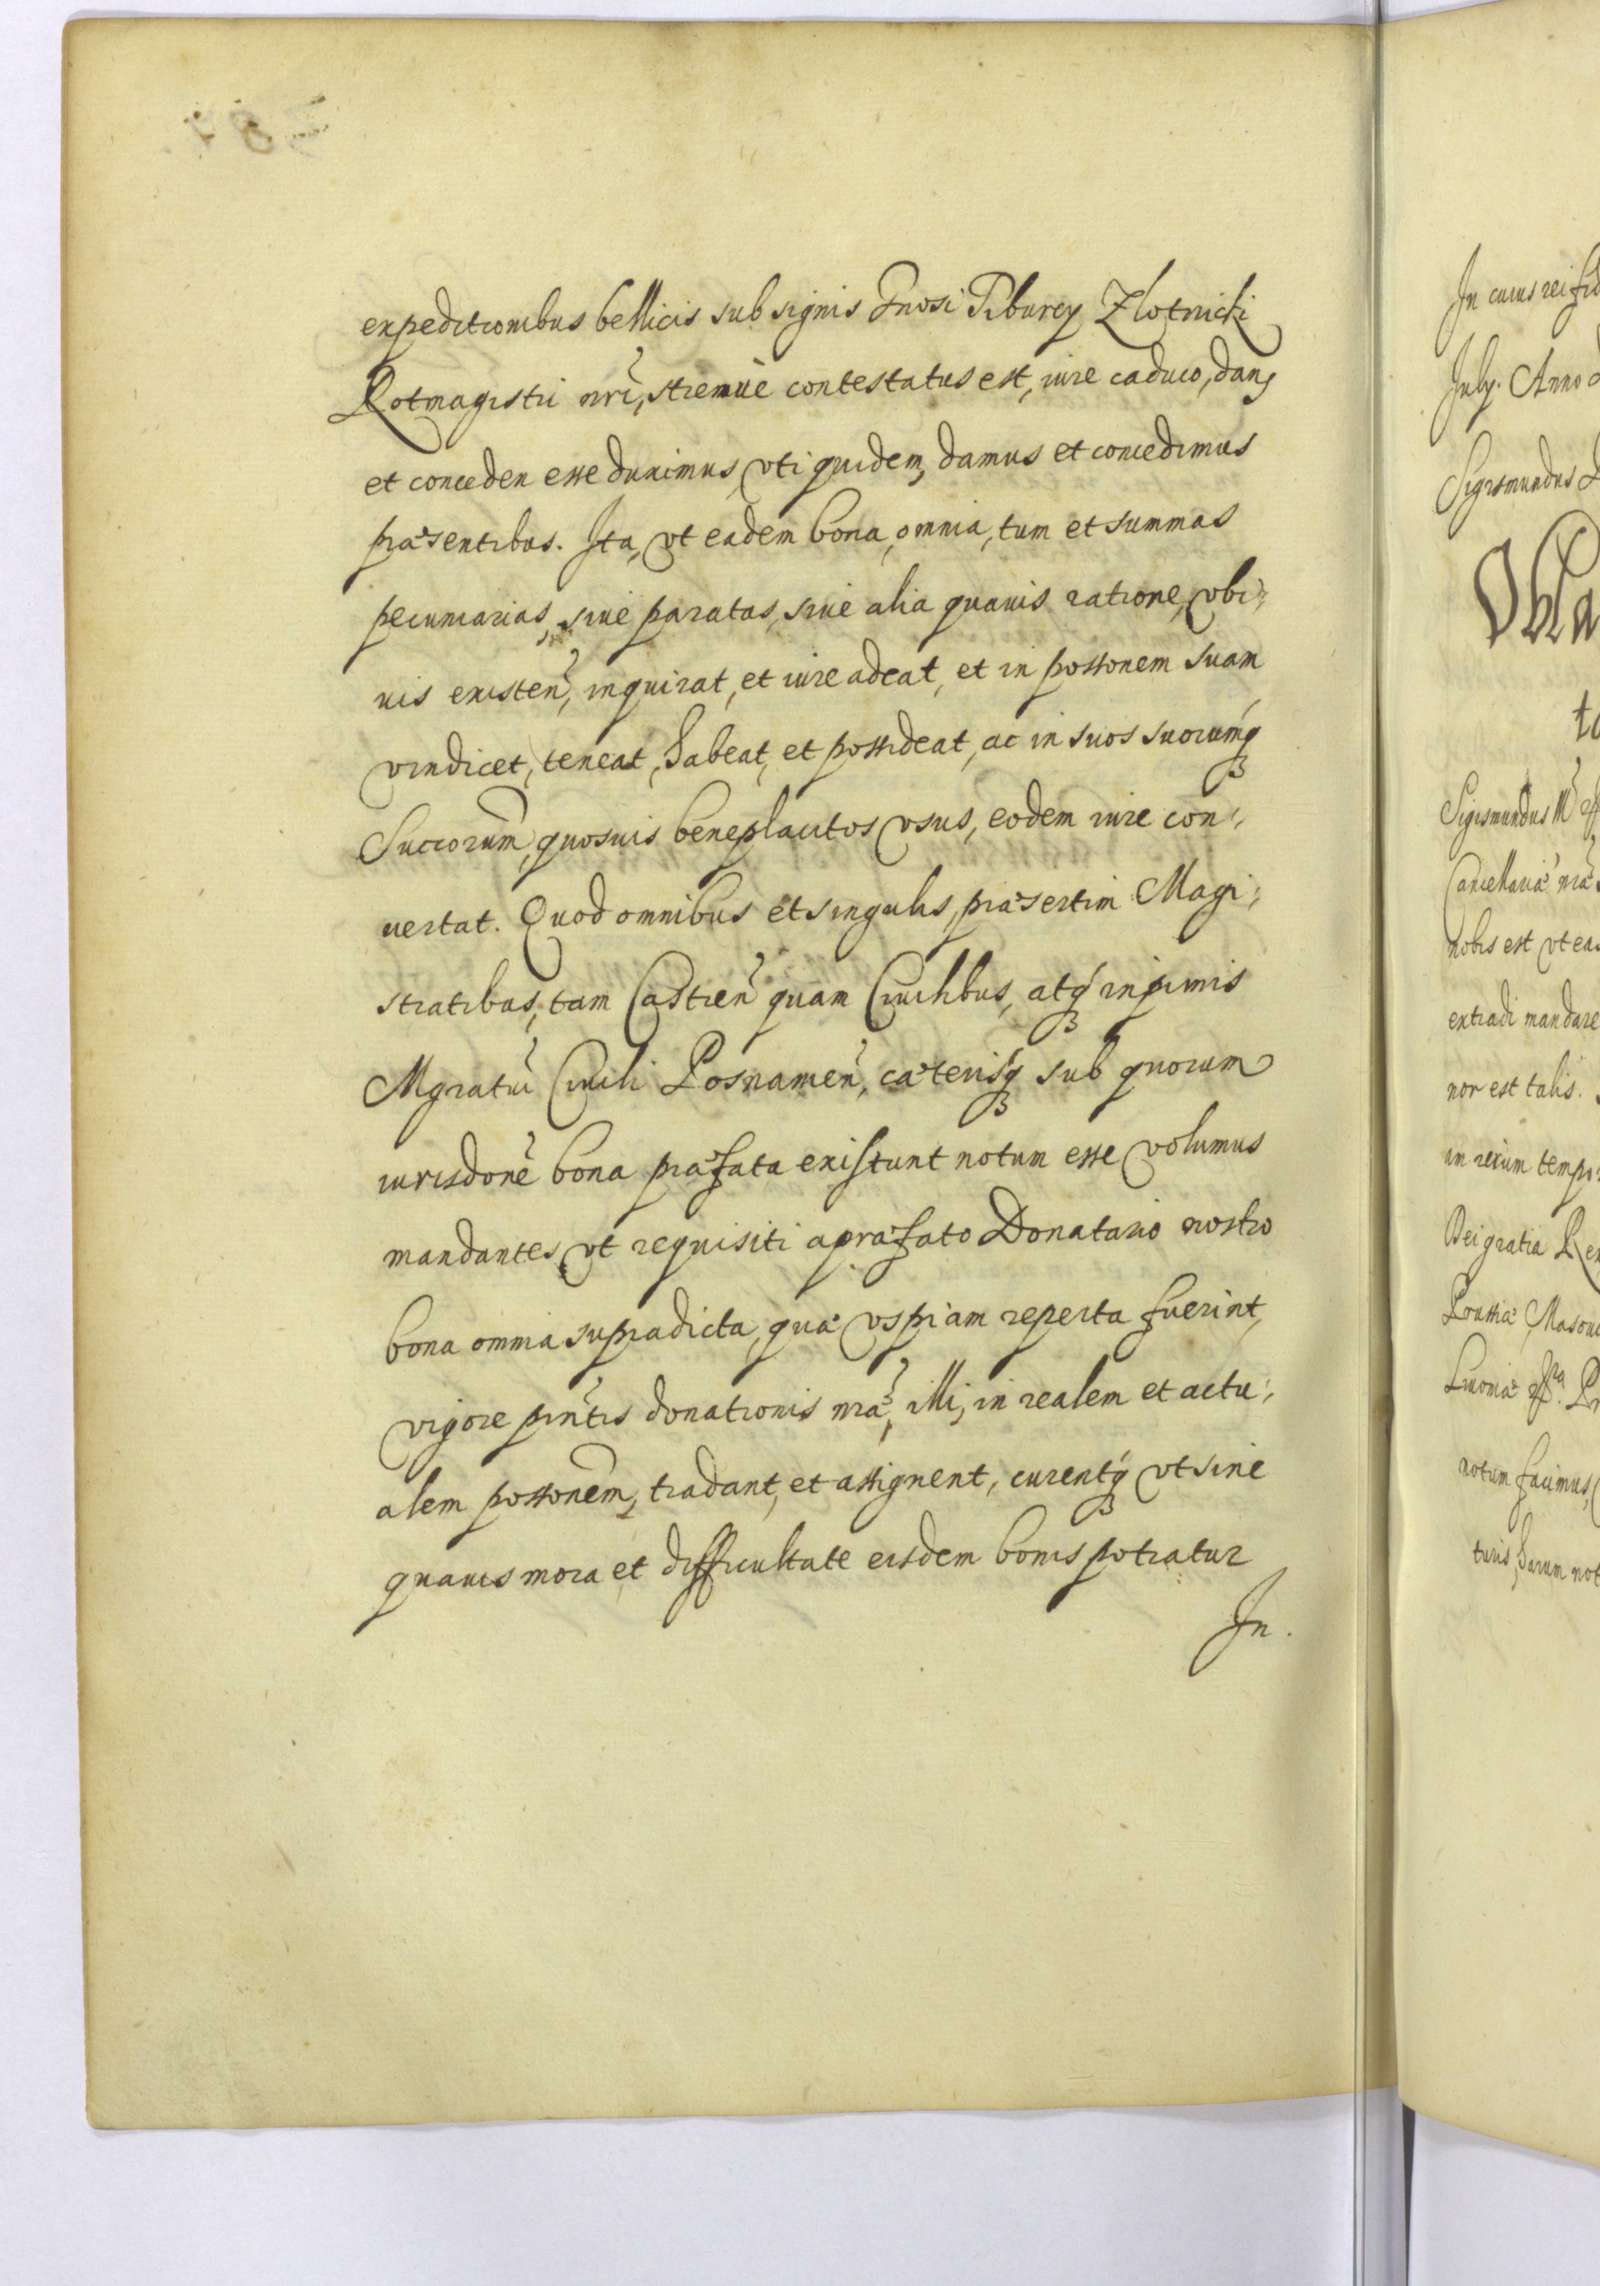 expeditionibus bellicis sub signis Gnosi Tiburcy Zlotnicki
Rotmagistri nrĩ, strenuè contestatus est, iure caduco, dan
et conceden esse duximus, vti quidem, damus et concedimus
præsentibus. Ita, vt eadem bona, omnia, tum et summas
pecuniarias, siue paratas, siue alia quauis ratione, vbi:
uis existeñ, inquirat, et iure adeat, et in possonem suam
vindicet, teneat, habeat, et possideat, ac in suos suorumq
Succorum, quosuis beneplacitos vsus, eodem iure con:
uertat. Quod omnibus et singulis, præsertim Magi:
stratibus, tam Castreñ quam Ciuilibus, atq inprimis
Mgratui Ciuili Posnameñ, cæterisq sub quorum
iurisdonẽ bona præfata existunt notum esse volumus
mandantes, vt requisiti a præfato Donatario nostro
bona omnia supradicta, quæ vspiam reperta fuerint,
vigore pñtis donationis nræ, illi, in realem et actu:
alem possonem, tradant, et assignent, curentq vt sine
quauis mora et difficultate eisdem bonis potiatur
In.
In cuius rei fid
July. Anno
Sigismundus
Obla
Sigismundus
Cancellariæ nræ
nobis est vt eas
extradi mandare
nor est talis.
Dei gratia Rex
Prussiæ Masoui
Liuoniæ
notum facimus,
turis, harum not